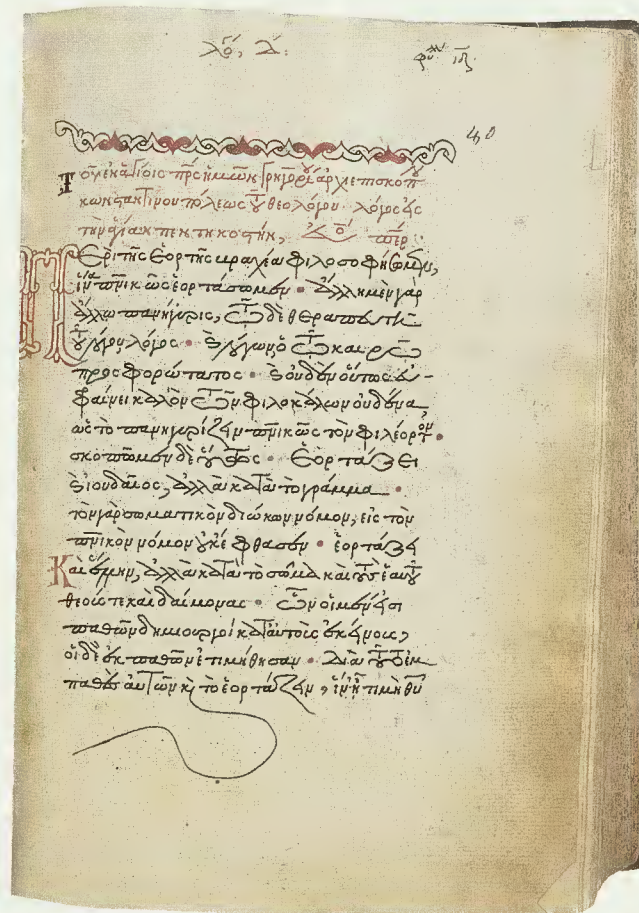 λόγ, Δ:
40
Τοῦ ἐν ἁγίοις πρς ἡμῶν Γρηγορίου ἀρχιεπισκόπ
κωνσταντινουπόλεως τοῦ θεολόγου. λόγος εἰς
τὴν ἁγίαν πεντηκοστήν,
Περὶ τῆς ἑορτῆς βραχέα φιλοσοφήσωμεν,
ἵνα πνικῶς ἑορτάσωμεν · ἄλλη μὲν γὰρ
ἄλλω πανήγυρις, τῶ δὲ θεραπευτῆ
τοῦ λόγου λόγος · καὶ λόγων ὁ τῶ καιρῶ
προσφορώτατος · καὶ οὐδὲν οὕτως εὐ-
φραίνει καλὸν τῶν φιλοκάλων οὐδένα
ὡς τὸ πανηγυρίζειν πνικῶς τὸν φιλέορτον ·
σκοπῶμεν δὲ οὕτως · Ἑορτάζει
καὶ ἰουδαῖος, ἀλλὰ κατὰ τὸ γράμμα ·
τὸν γὰρ σωματικὸν διώκων νόμον, εἰς τὸν
πνικὸν νόμον οὐκ ἔφθασεν · ἑορτάζει
Καὶ ἕλλην, ἀλλὰ κατὰ τὸ σῶμα καὶ τοὺς ἑαυτοῦ
θεούς τε καὶ δαίμονας · ὧν οἱ μέν εἰσι
παθῶν δημιουργοὶ κατ' αὐτοὺς ἐκείνους,
οἱ δὲ ἐκ παθῶν ἐτιμήθησαν · διὰ τοῦτο ἐμ
παθὲς αὐτῶν καὶ τὸ ἑορτάζειν, ἵν' ἦ τιμὴ θυ